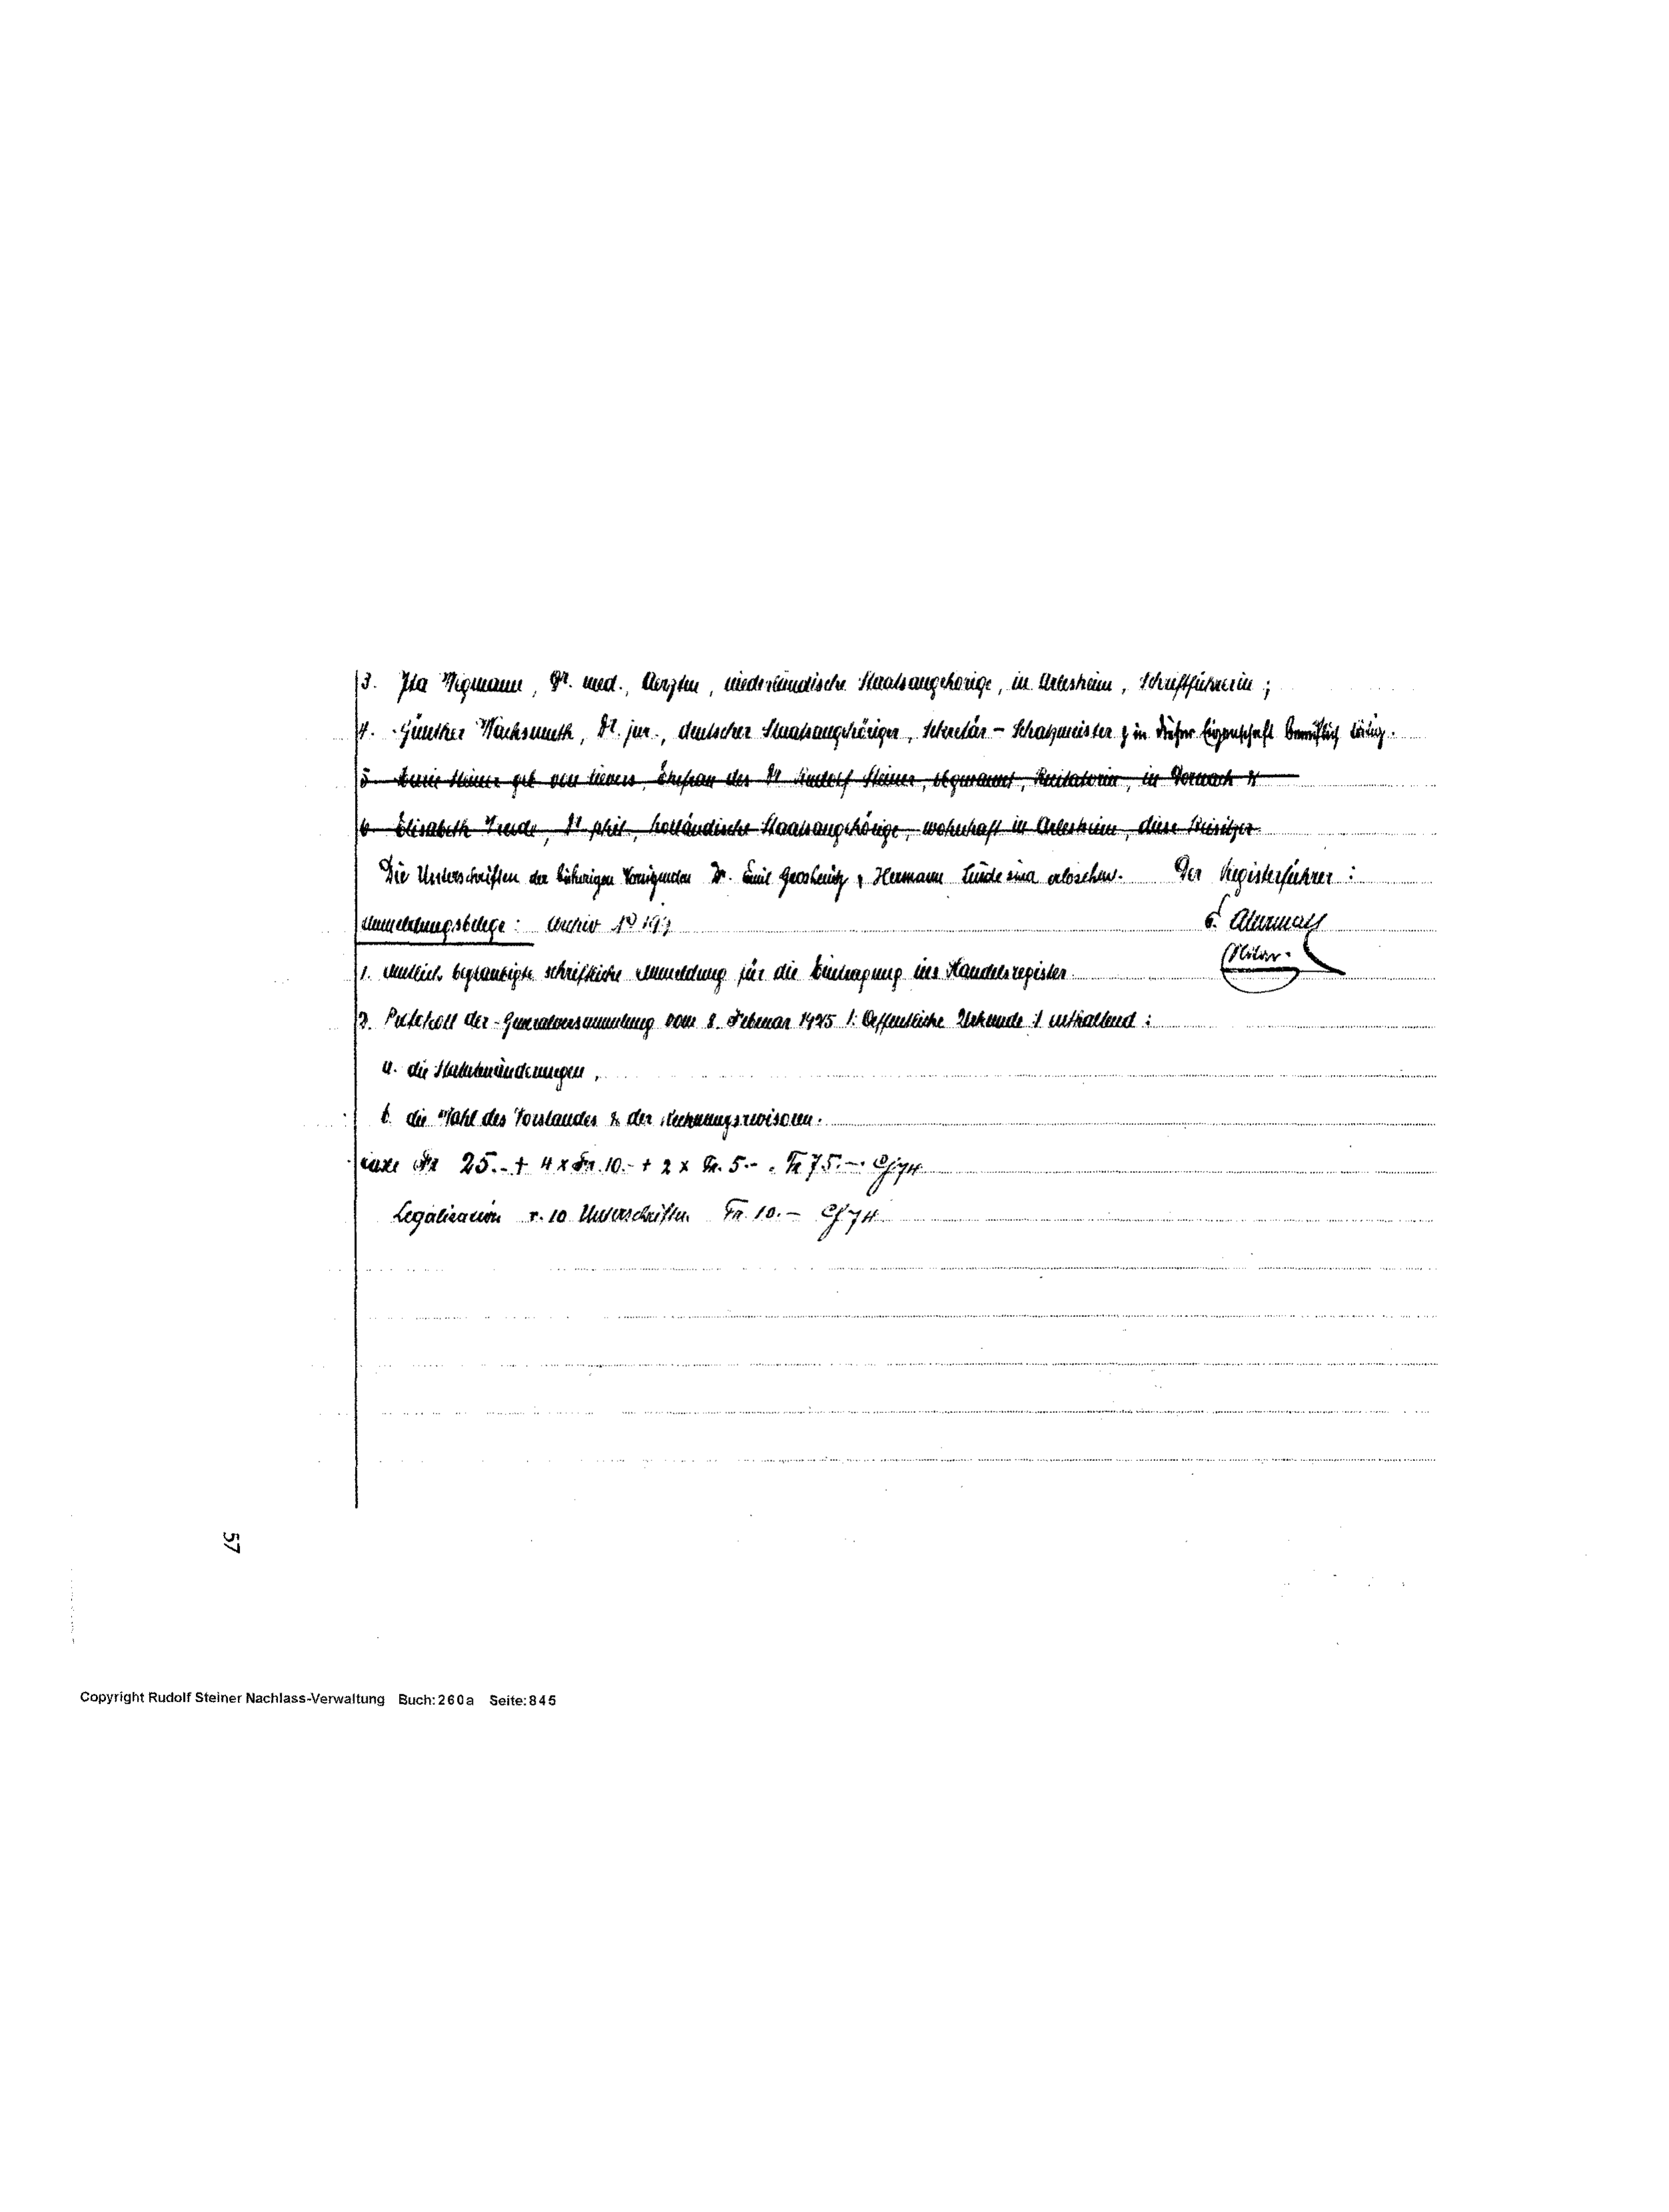 3. Ita Wegmann, Dr. med., Aerztin, niederländische Staatsangehörige, in Arlesheim, Schriftführerin;
4. Günther Wachsmuth, Dr. jur., deutscher Staatsangehöriger, Sekretär-Schatzmeister & in dieser Eigenschaft berufl. tätig.
5. Marie Steiner geb. von Sivers, Ehefrau des Dr. Rudolf Steiner, obgenannt, Rezitatorin, in Dornach &
6. Elisabeth Vreede, Dr. phil., holländische Staatsangehörige, wohnhaft in Arlesheim, diese Beisitzer.
Die Unterschriften der bisherigen Dr. Emil Grosheintz & Hermann Linde sind erloschen. Der Registerführer:
Anmeldungsbelege: Archiv No
1. Amtlich beglaubigte schriftliche Anmeldung für die Eintragung ins Handelsregister.
2. Protokoll der Generalversammlung vom 8. Februar 1925 /: Oeffentliche Urkunde :/ enthaltend:
a. die Statutenänderungen,
b. die Wahl des Vorstandes & der Rechnungsrevisoren.
Taxe Fr. 25.- + 4 x Fr. 10.- + 2 x Fr. 5.- = Fr. 75.-
Legalisation v. 10 Unterschriften Fr. 10.-
57
Copyright Rudolf Steiner Nachlass-Verwaltung Buch:260a Seite:845